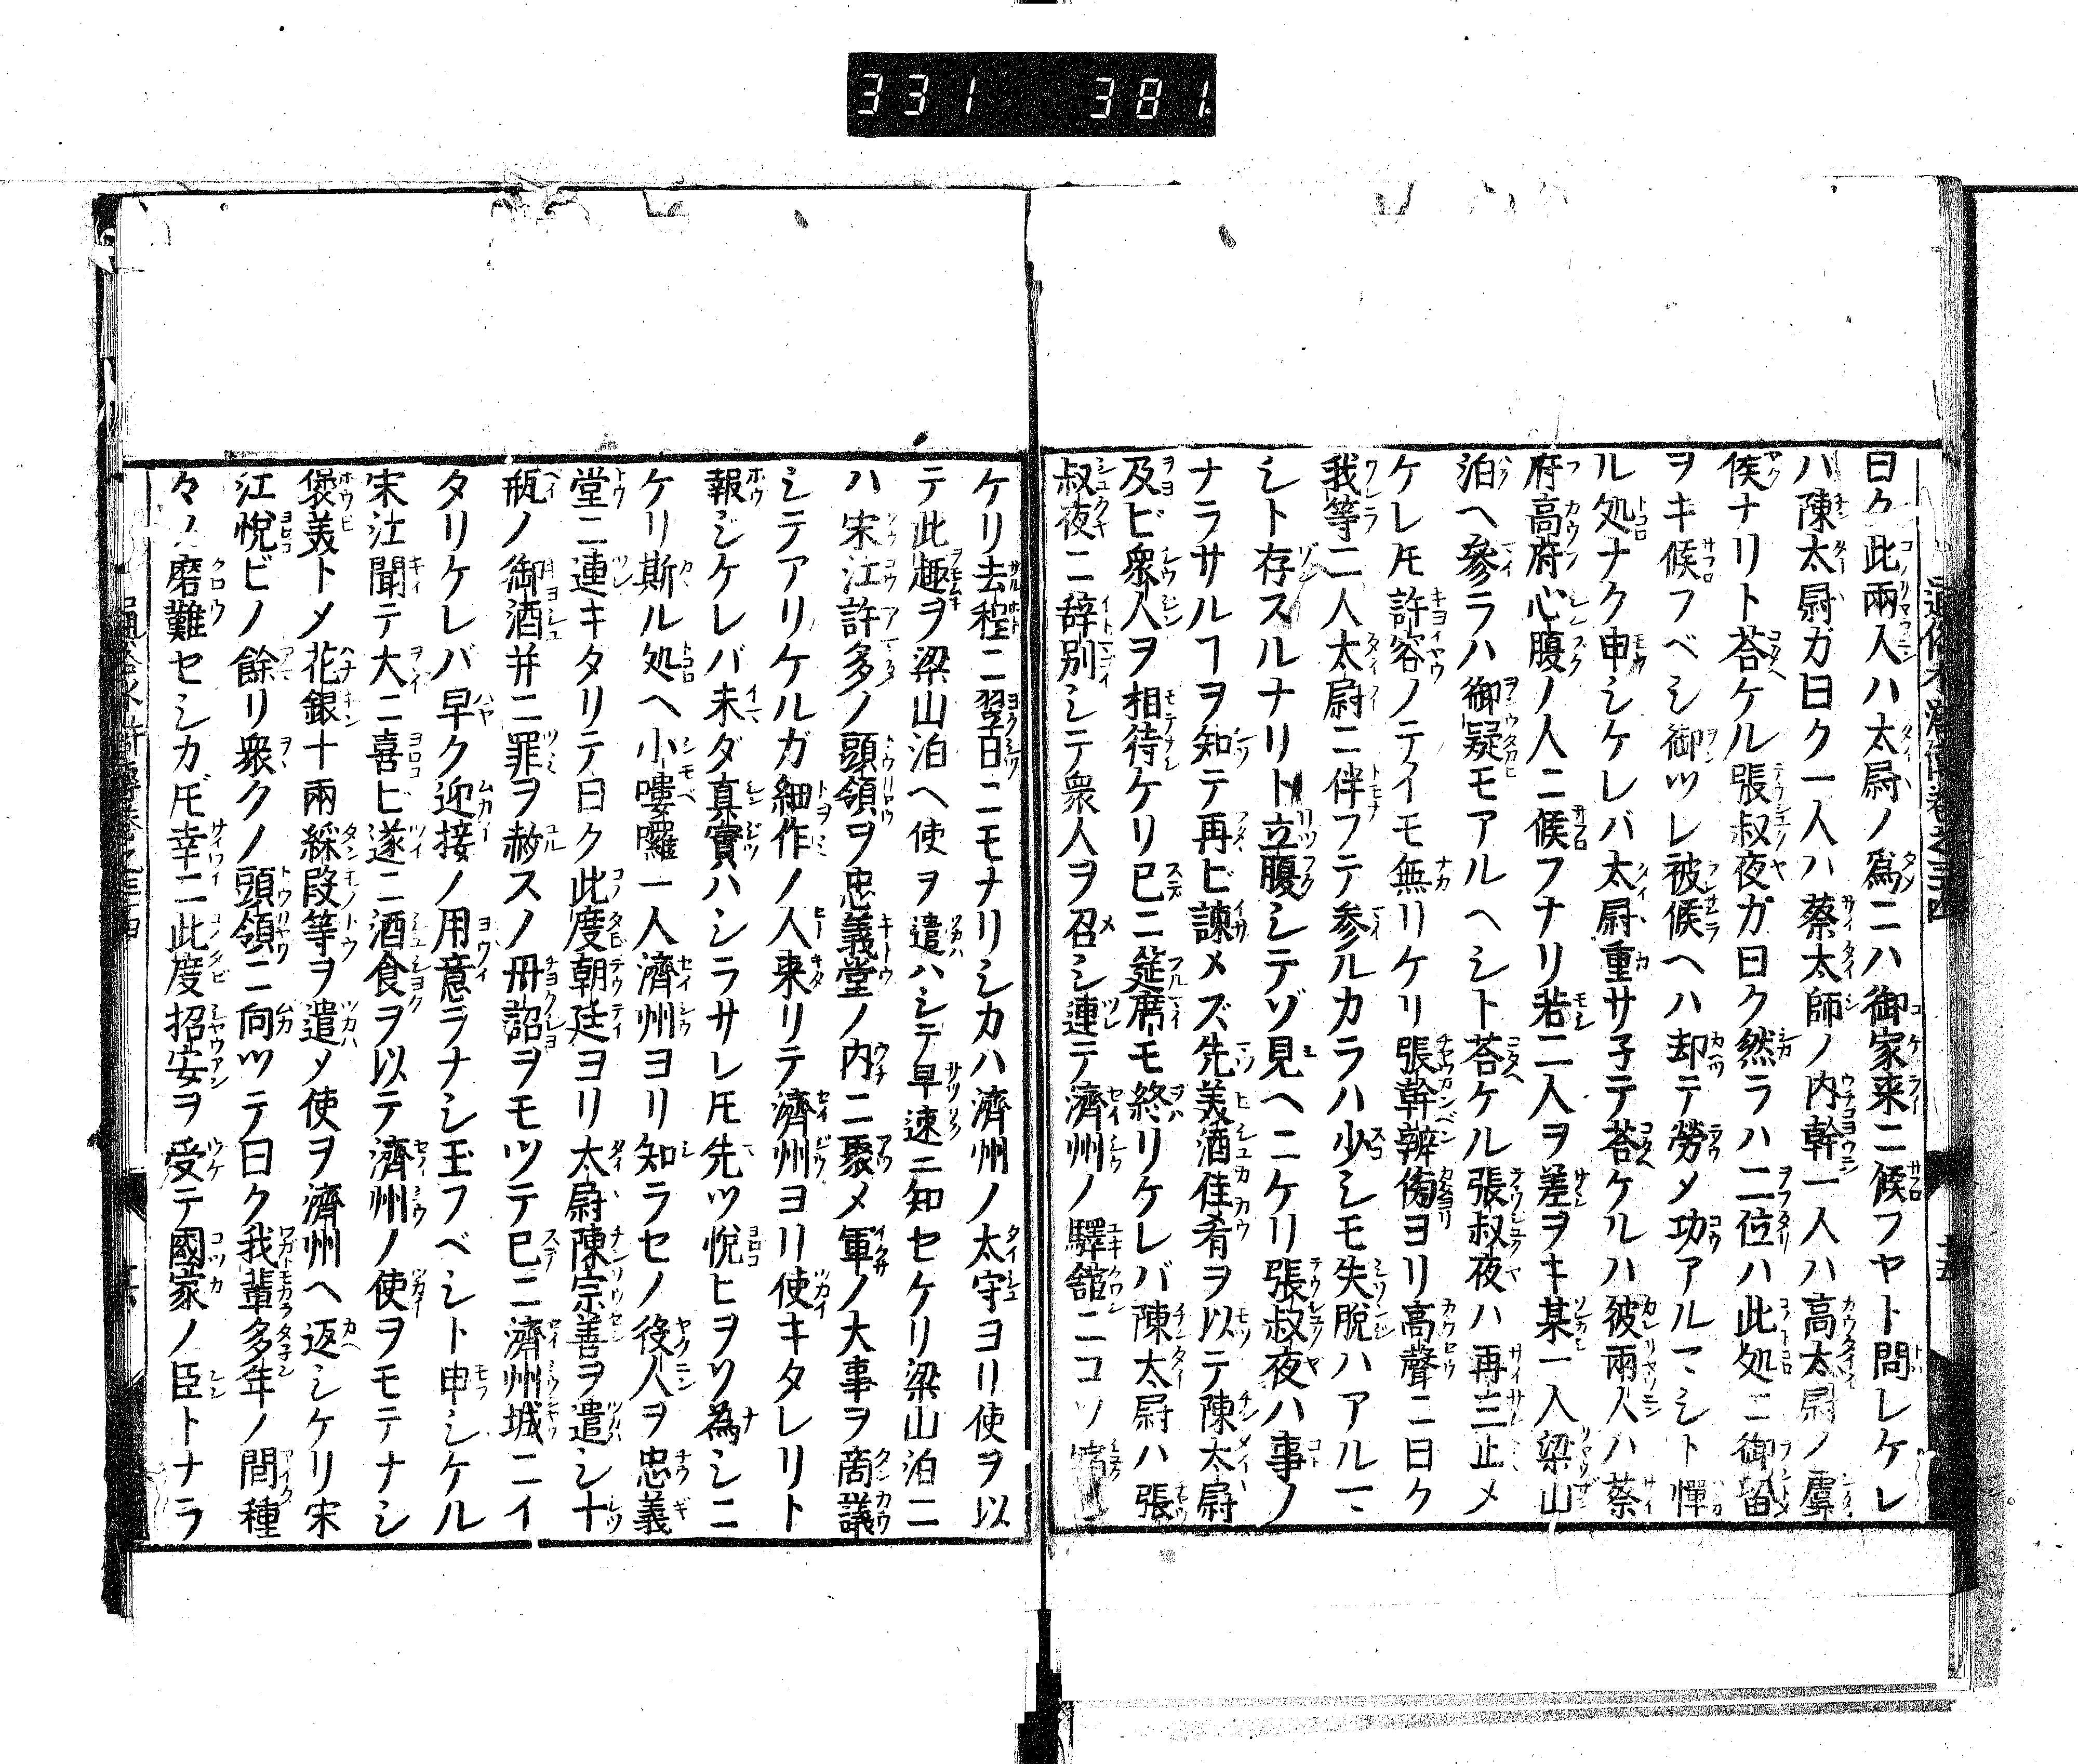 331 381
曰ク此兩人ハ太尉ノ爲ニハ御家来ニ候フヤト問レケレ
ハ陳太尉ガ曰ク一人ハ蔡太師ノ内幹一人ハ高太尉ノ虞
候ナリト荅ケル張叔夜ガ曰ク然ラハ二位ハ此処ニ御留
ヲキ候フベシ御ツレ被候ヘハ却テ勞メ功アルマシト憚
ル処ナク申シケレバ太尉重サ子テ荅ケルハ彼兩人ハ蔡
府高府心腹ノ人ニ候フナリ若二人ヲ差ヲキ某一人梁山
泊ヘ參ラハ御疑モアルヘシト荅ケル張叔夜ハ再三止メ
ケレ𪜈許容ノテイモ無リケリ張幹辨傍ヨリ高聲ニ曰ク
我等二人太尉ニ伴フテ参ルカラハ少シモ失脱ハアルマ
シト存スルナリト立腹シテゾ見ヘニケリ張叔夜ハ事ノ
ナラサルヿヲ知テ再ビ諫メズ先美酒佳肴ヲ以テ陳太尉
及ビ衆人ヲ相待ケリ已ニ筵席モ終リケレバ陳太尉ハ張
叔夜ニ辞別シテ衆人ヲ召シ連テ濟州ノ驛舘ニコソ
ケリ去程ニ翌日ニモナリシカハ濟州ノ太守ヨリ使ヲ以
テ此趣ヲ梁山泊ヘ使ヲ遣ハシテ早速ニ知セケリ梁山泊ニ
ハ宋江許多ノ頭領ヲ忠義堂ノ内ニ聚メ軍ノ大事ヲ商議
シテアリケルガ細作ノ人来リテ濟州ヨリ使キタレリト
報ジケレバ未ダ真實ハシラサレ𪜈先ツ悅ヒヲソ為シニ
ケリ斯ル処ヘ小嘍囉一人濟州ヨリ知ラセノ役人ヲ忠義
堂ニ連キタリテ曰ク此度朝廷ヨリ太尉陳宗善ヲ遣シ十
瓶ノ御酒并ニ罪ヲ赦スノ冊詔ヲモツテ已ニ濟州城ニイ
タリケレバ早ク迎接ノ用意ヲナシ玉フベシト申シケル
宋江聞テ大ニ喜ビ遂ニ酒食ヲ以テ濟州ノ使ヲモテナシ
褒美トメ花銀十兩綵段等ヲ遣メ使ヲ濟州ヘ返シケリ宋
江悅ビノ餘リ衆クノ頭領ニ向ツテ曰ク我輩多年ノ間種
々ノ磨難セシカ𪜈幸ニ此度招安ヲ受テ國家ノ臣トナラ